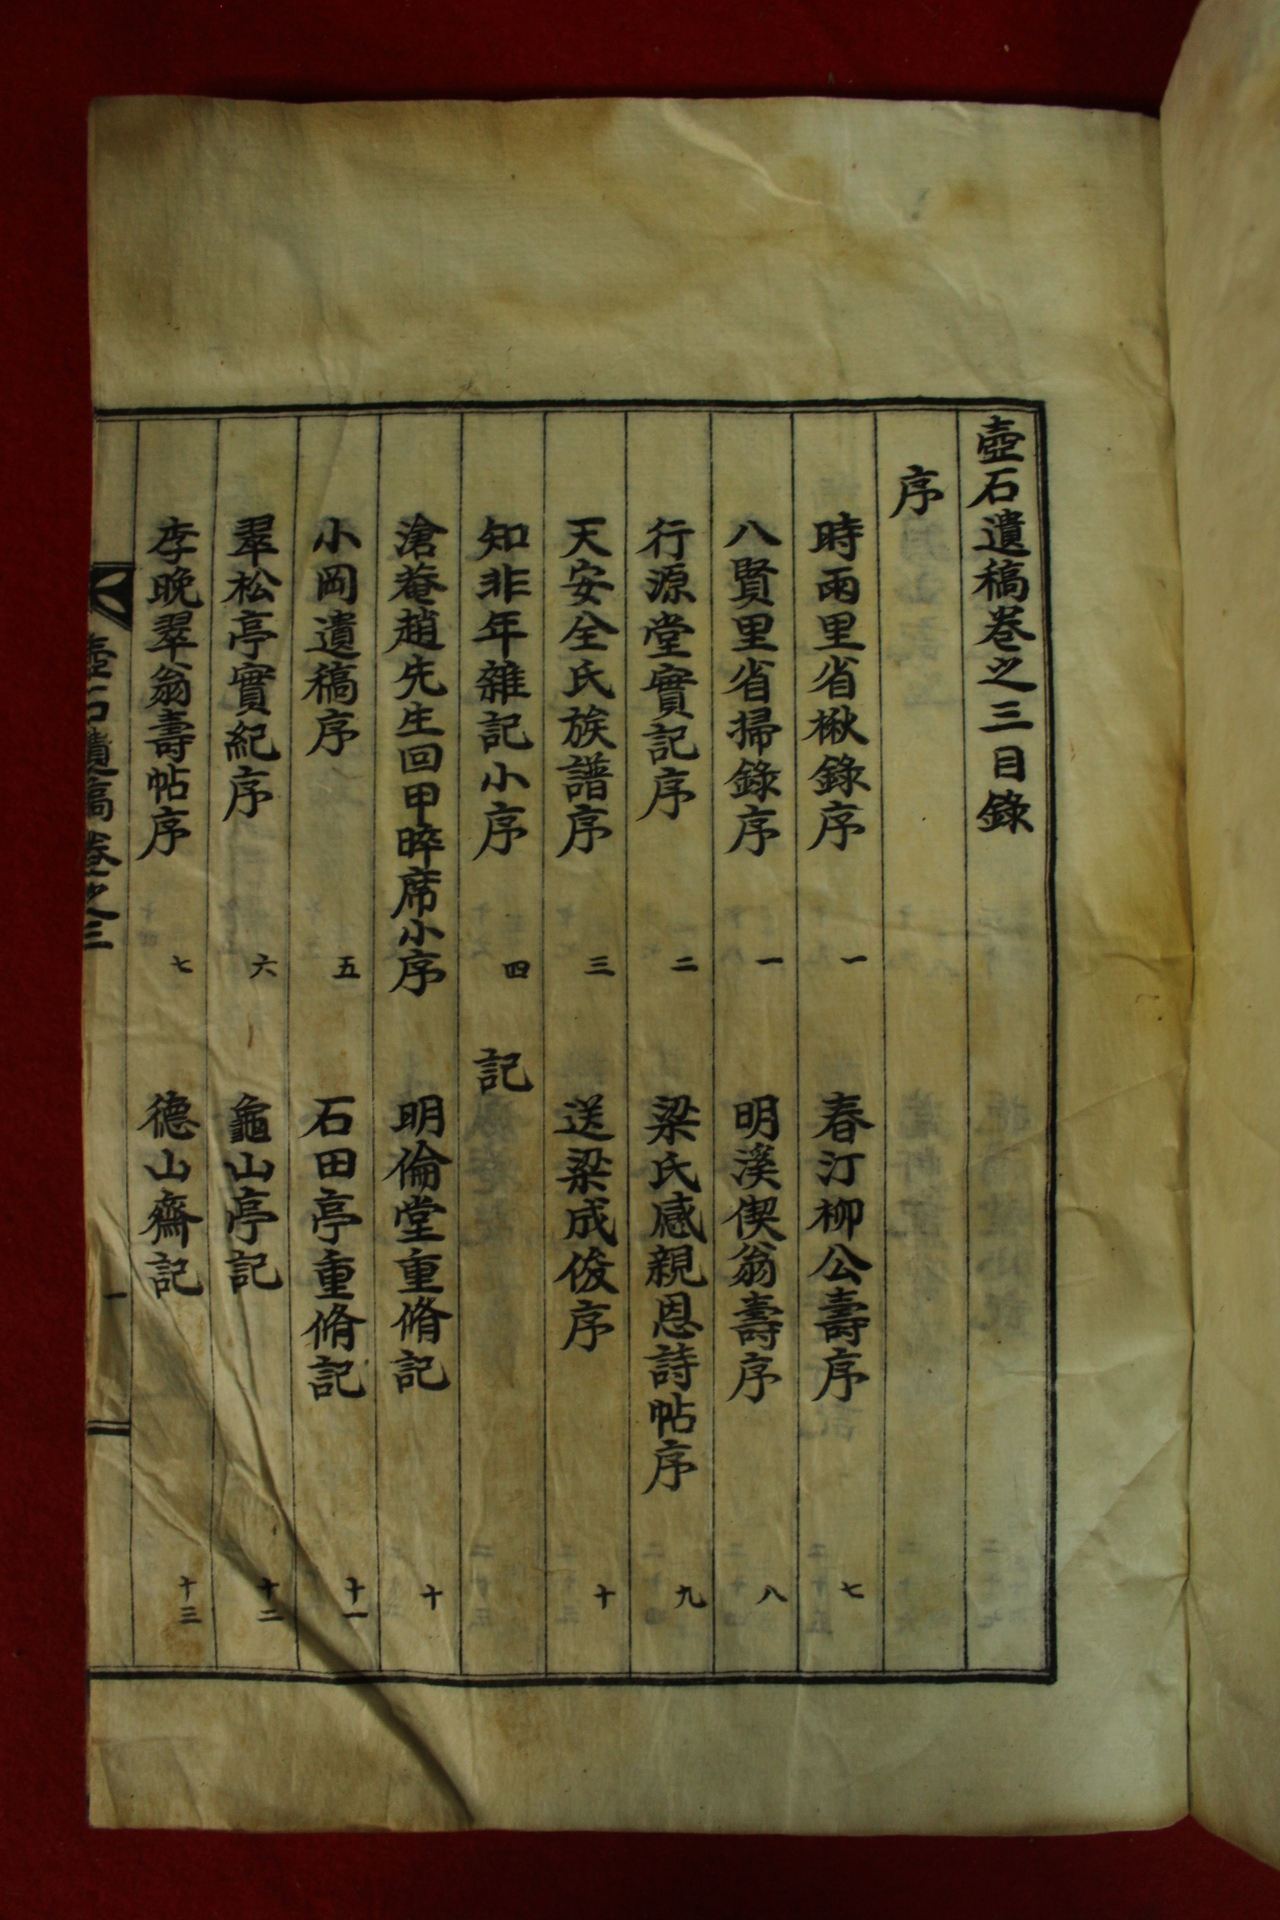 壺石遺稿卷之三目錄
序
時雨里省楸錄序 一 春汀柳公壽序 七
八賢里省掃錄序 一 明溪偰翁壽序 八
行源堂實記序 二 梁氏感親恩詩帖序 九
天安全氏族譜序 三 送梁成俊序 十
知非年雜記小序 四 記
滄菴趙先生回甲晬席小序 明倫堂重脩記 十
小岡遺稿序 五 石田亭重脩記 十一
翠松亭實紀序 六 龜山亭記 十二
李晩翠翁壽帖序 七 德山齋記 十三
壺石遺稿卷之三 一